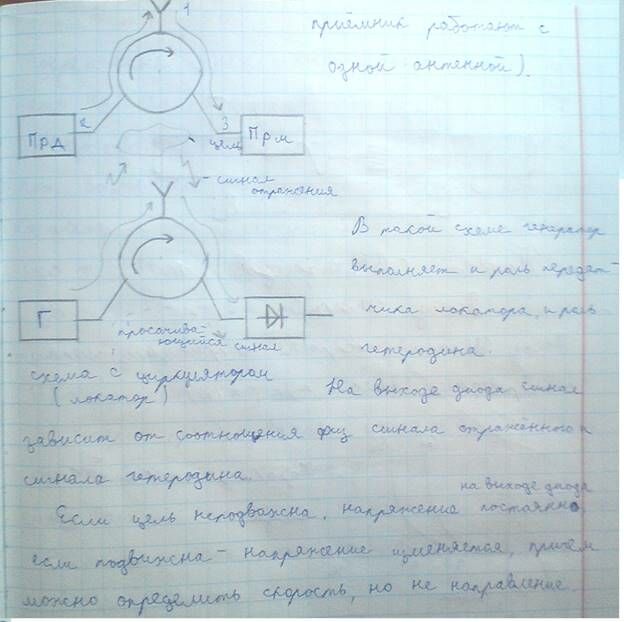 приёмник работают с
одной антенной).
1
2
3
ПрД
Прм
цель
- сигнал
отражения
В такой схеме генератор
выполняет и роль передат-
чика локатора, и роль
гетеродина.
Г
просачива-
ющийся сигнал
схема с циркулятором
(локатор)
На выходе диода сигнал
зависит от соотношения фаз сигнала отражённого и
сигнала гетеродина.
на выходе диода
Если цель неподвижна, напряжение постоянно
если подвижна - напряжение изменяется, причём
можно определить скорость, но не направление.